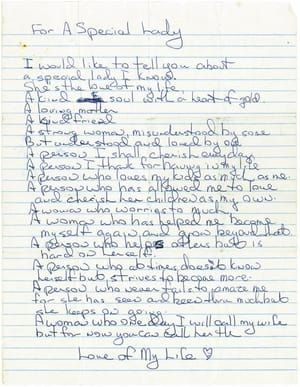 For A Special Lady
I would like to tell you about
a special lady I know
She's the love of my life
A kind soul with a heart of gold
A loving mother
A kind friend
A strong woman, misunderstood by some
But understood and loved by
A person I shall cherish everyday
A person I thank for having in my life
A person who loves my kids as much as me.
A person who has allowed me to love
and cherish her children as my own.
A woman who worries to much
A woman who has helped me become
myself again, and grow beyond that
A person who helps others but is
hard on herself.
A person who at times doesn't know
herself but strives to become more.
A person who never fails to amaze me
for she has seen and been thru much but
she keeps on going.
A woman who one day I will call my wife
but for now you can call her the
Love of My Life ♡